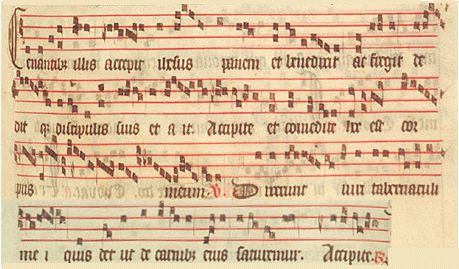 Cenantibus illis accepit ihesus panem et benedixit ac fregit de
dit que discipulis suis et a it. Accipite et comedite hoc est cor
pus meum. V. Dixerunt viri tabernaculi
me i quis det ut de carnibus eius saturemur. Accipite. R.